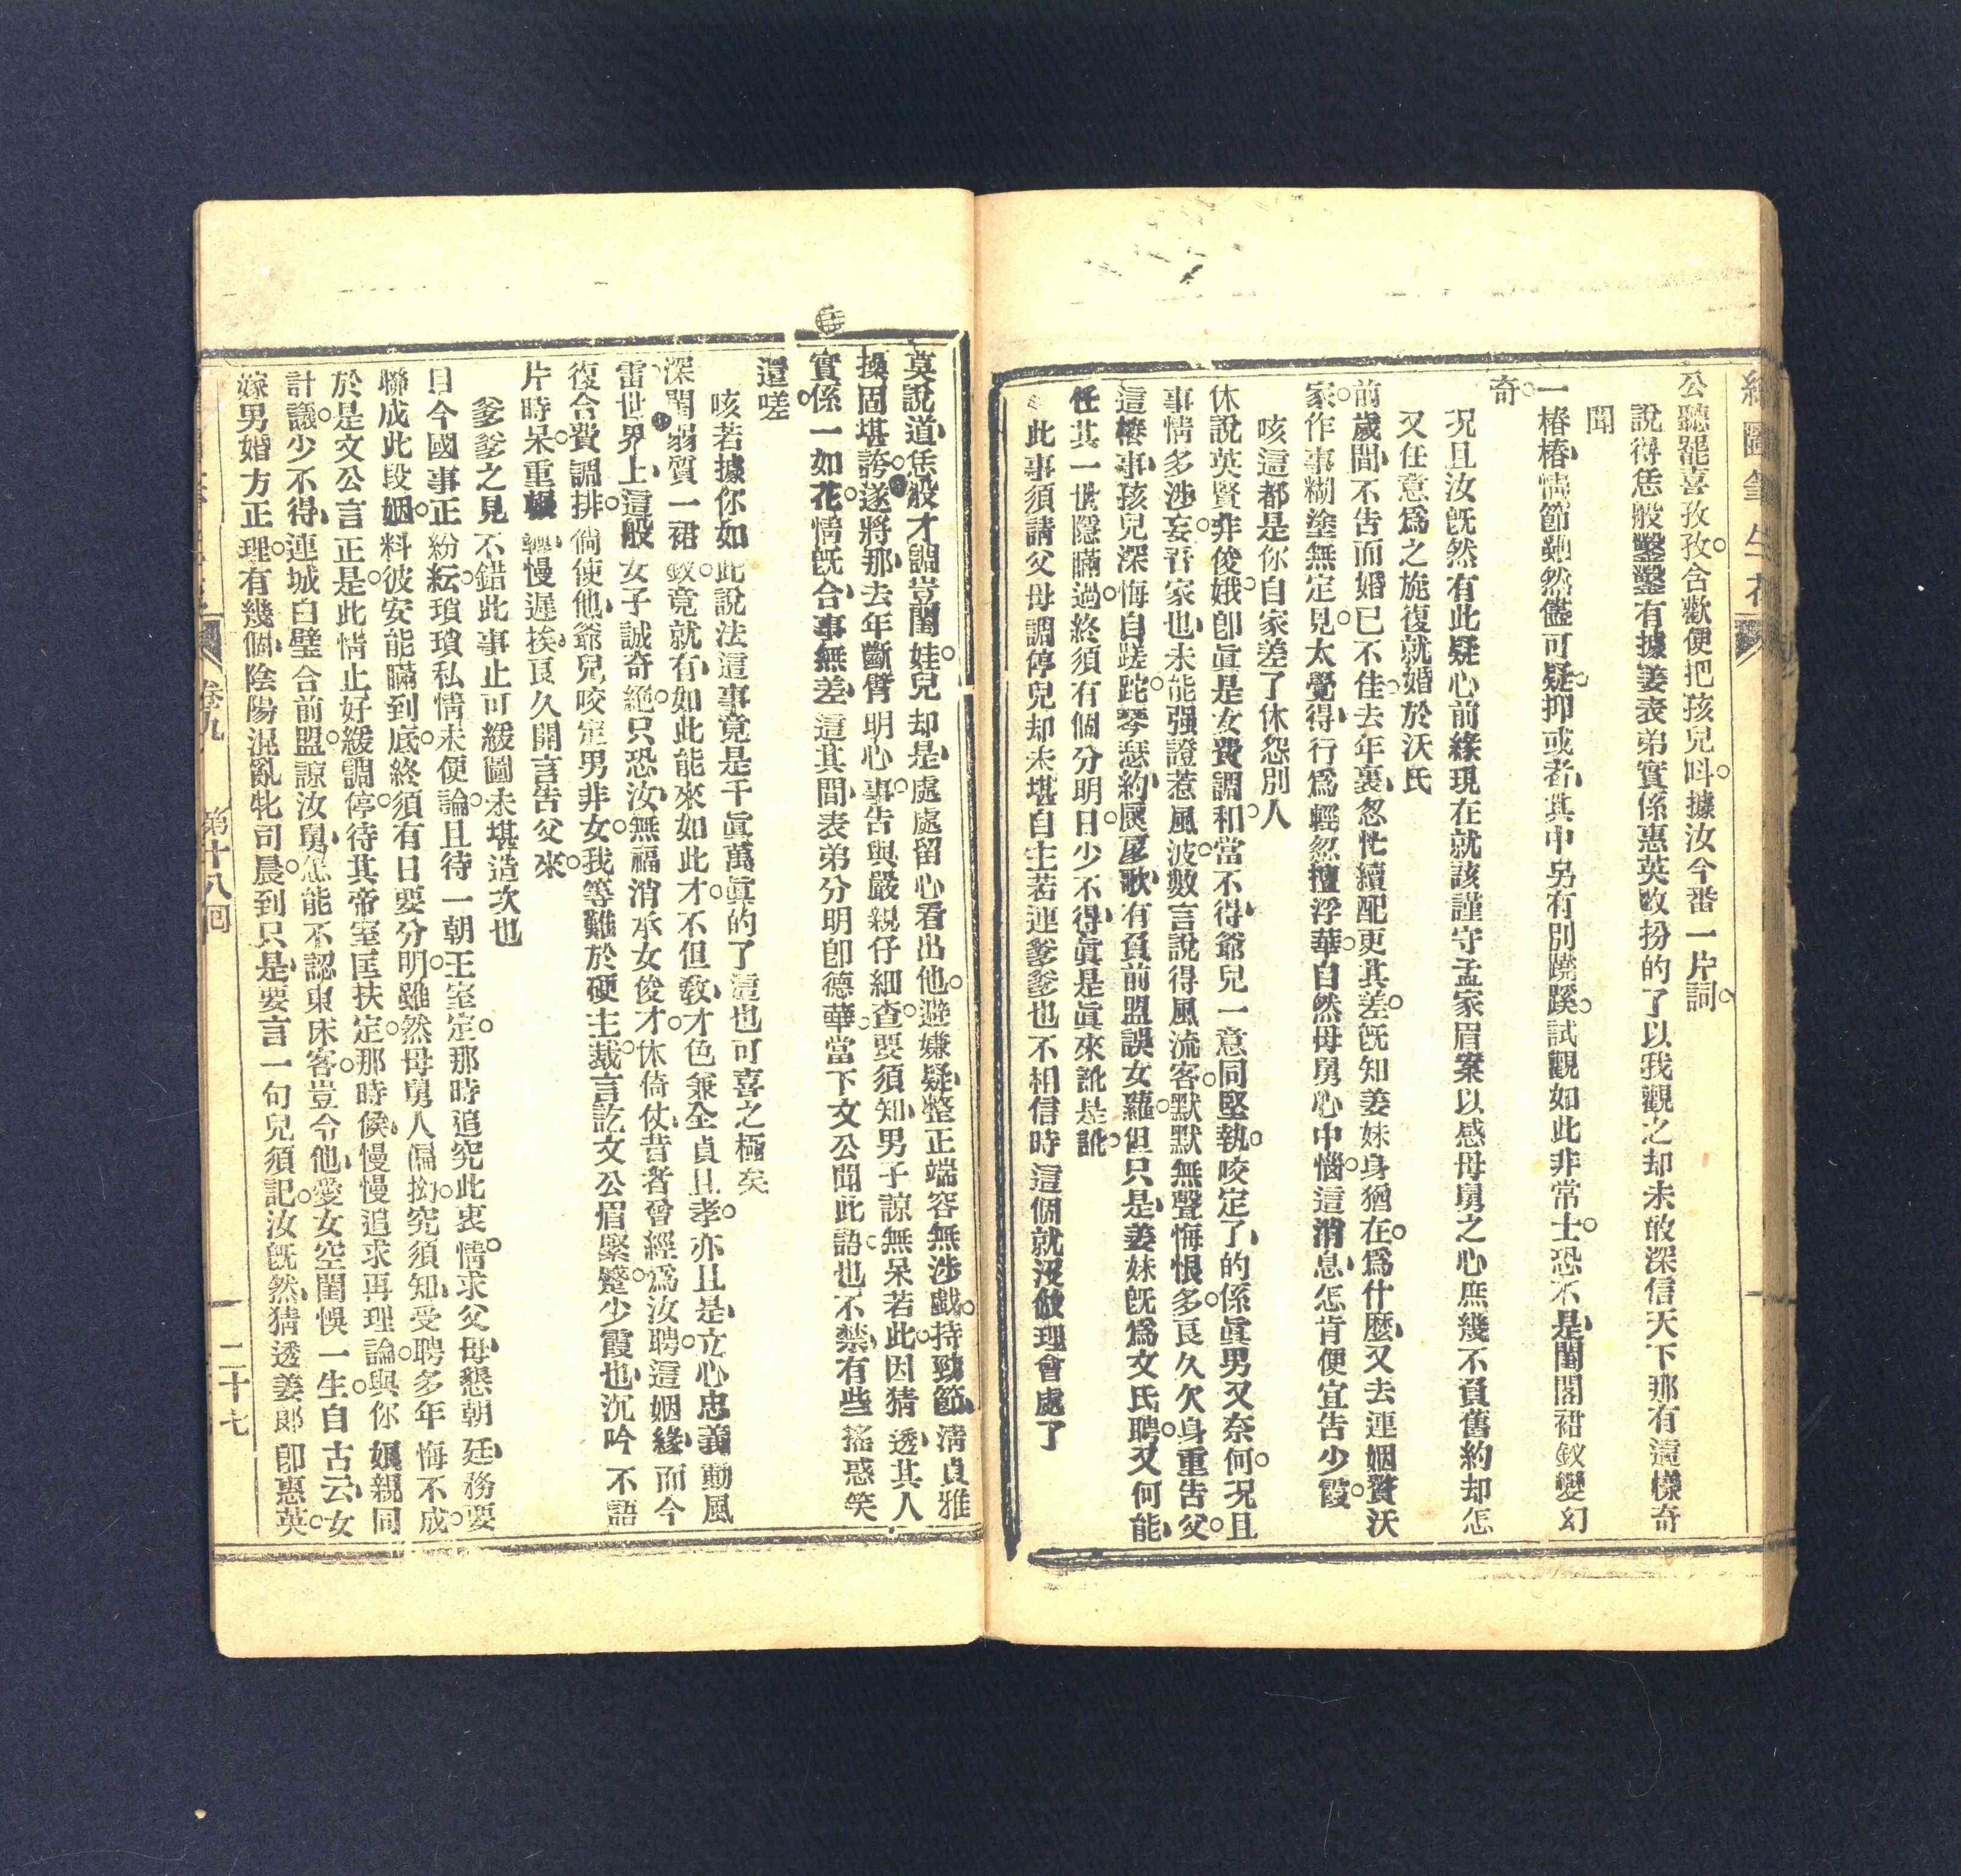 繪圖筆生花
公聽罷喜孜孜。含歡便把孩兒呌。據汝今番一片詞。
說得恁般鑿鑿有據姜表弟實係惠英改扮的了以我觀之却未敢深信天下那有這樣奇
聞
一樁樁、情節雖然儘可疑。抑或者、其中另有別蹺蹊。試觀如此非常士。恐不是、閨閣裙釵變幻
奇。
况且汝旣然有此疑心前緣現在就該謹守孟家眉案以感母舅之心庶幾不負舊約却怎
又任意爲之施復就婚於沃氏
前歲間、不告而婚已不佳。去年裏、忽忙續配更其差。旣知姜妹身猶在。爲什麼、又去連姻贅沃
家。作事糊塗無定見。太覺得、行爲輕忽擅浮華。自然母舅心中惱。這消息、怎肯便宜告少霞。
咳這都是你自家差了休怨別人
休說英賢非俊娥。卽眞是女費調和。當不得、爺兒一意同堅執。咬定了、的係眞男又奈何。况且
事情多涉妄。吾家也、未能强證惹風波。數言說得風流客。默默無聲悔恨多。良久欠身重告父。
這樁事、孩兒深悔自蹉跎。琴瑟約、扊扅歌、有負前盟誤女蘿。但只是、姜妹旣爲文氏聘。又何能、
任其一世隱瞞過。終須有個分明日。少不得、眞是眞來訛是訛。
此事須請父母調停兒却未堪自主若連爹爹也不相信時這個就沒做理會處了
莫說道、恁般才調豈閨娃。兒却是、處處留心看出他。避嫌疑、整正端容無涉戲。持勁節、淸貞雅
操固堪誇。遂將那、去年斷臂明心事。告與嚴親仔細查。要須知、男子諒無呆若此。因猜透、其人
實係一如花。情旣合、事無差、這其間、表弟分明卽德華。當下文公聞此語。也不禁、有些搖惑笑
還嗟
咳若據你如此說法這事竟是千眞萬眞的了這也可喜之極矣
深閨弱質一裙釵。竟就有、如此能來如此才。不但敎、才色兼全貞且孝。亦且是、立心忠義動風
雷。世界上、這般女子誠奇絕。只恐汝、無福消承女俊才。休倚仗、昔者曾經爲汝聘。這姻緣、而今
復合費調排。倘使他、爺兒咬定男非女。我等難於硬主裁。言訖文公眉緊蹙。少霞也、沉吟不語
片時呆。重輾轉、慢遲挨。良久開言告父來。
爹爹之見不錯此事止可緩圖未堪造次也
目今國事正紛紜。瑣瑣私情未便論。且待一朝王室定。那時追究此衷情。求父母、懇朝廷、務要
聯成此段姻。料彼安能瞞到底。終須有日要分明。雖然母舅人偏拗。究須知、受聘多年悔不成。
於是文公言正是。此情止好緩調停。待其帝室匡扶定。那時候、慢慢追求再理論。與你孃親同
計議。少不得、連城白璧合前盟。諒汝舅、怎能不認東床客。豈令他、愛女空閨悞一生。自古云、女
嫁男婚方正理。有幾個、陰陽混亂牝司晨。到只是、要言一句兒須記。汝旣然、猜透姜郎卽惠英。
卷九
第十八回
二十七